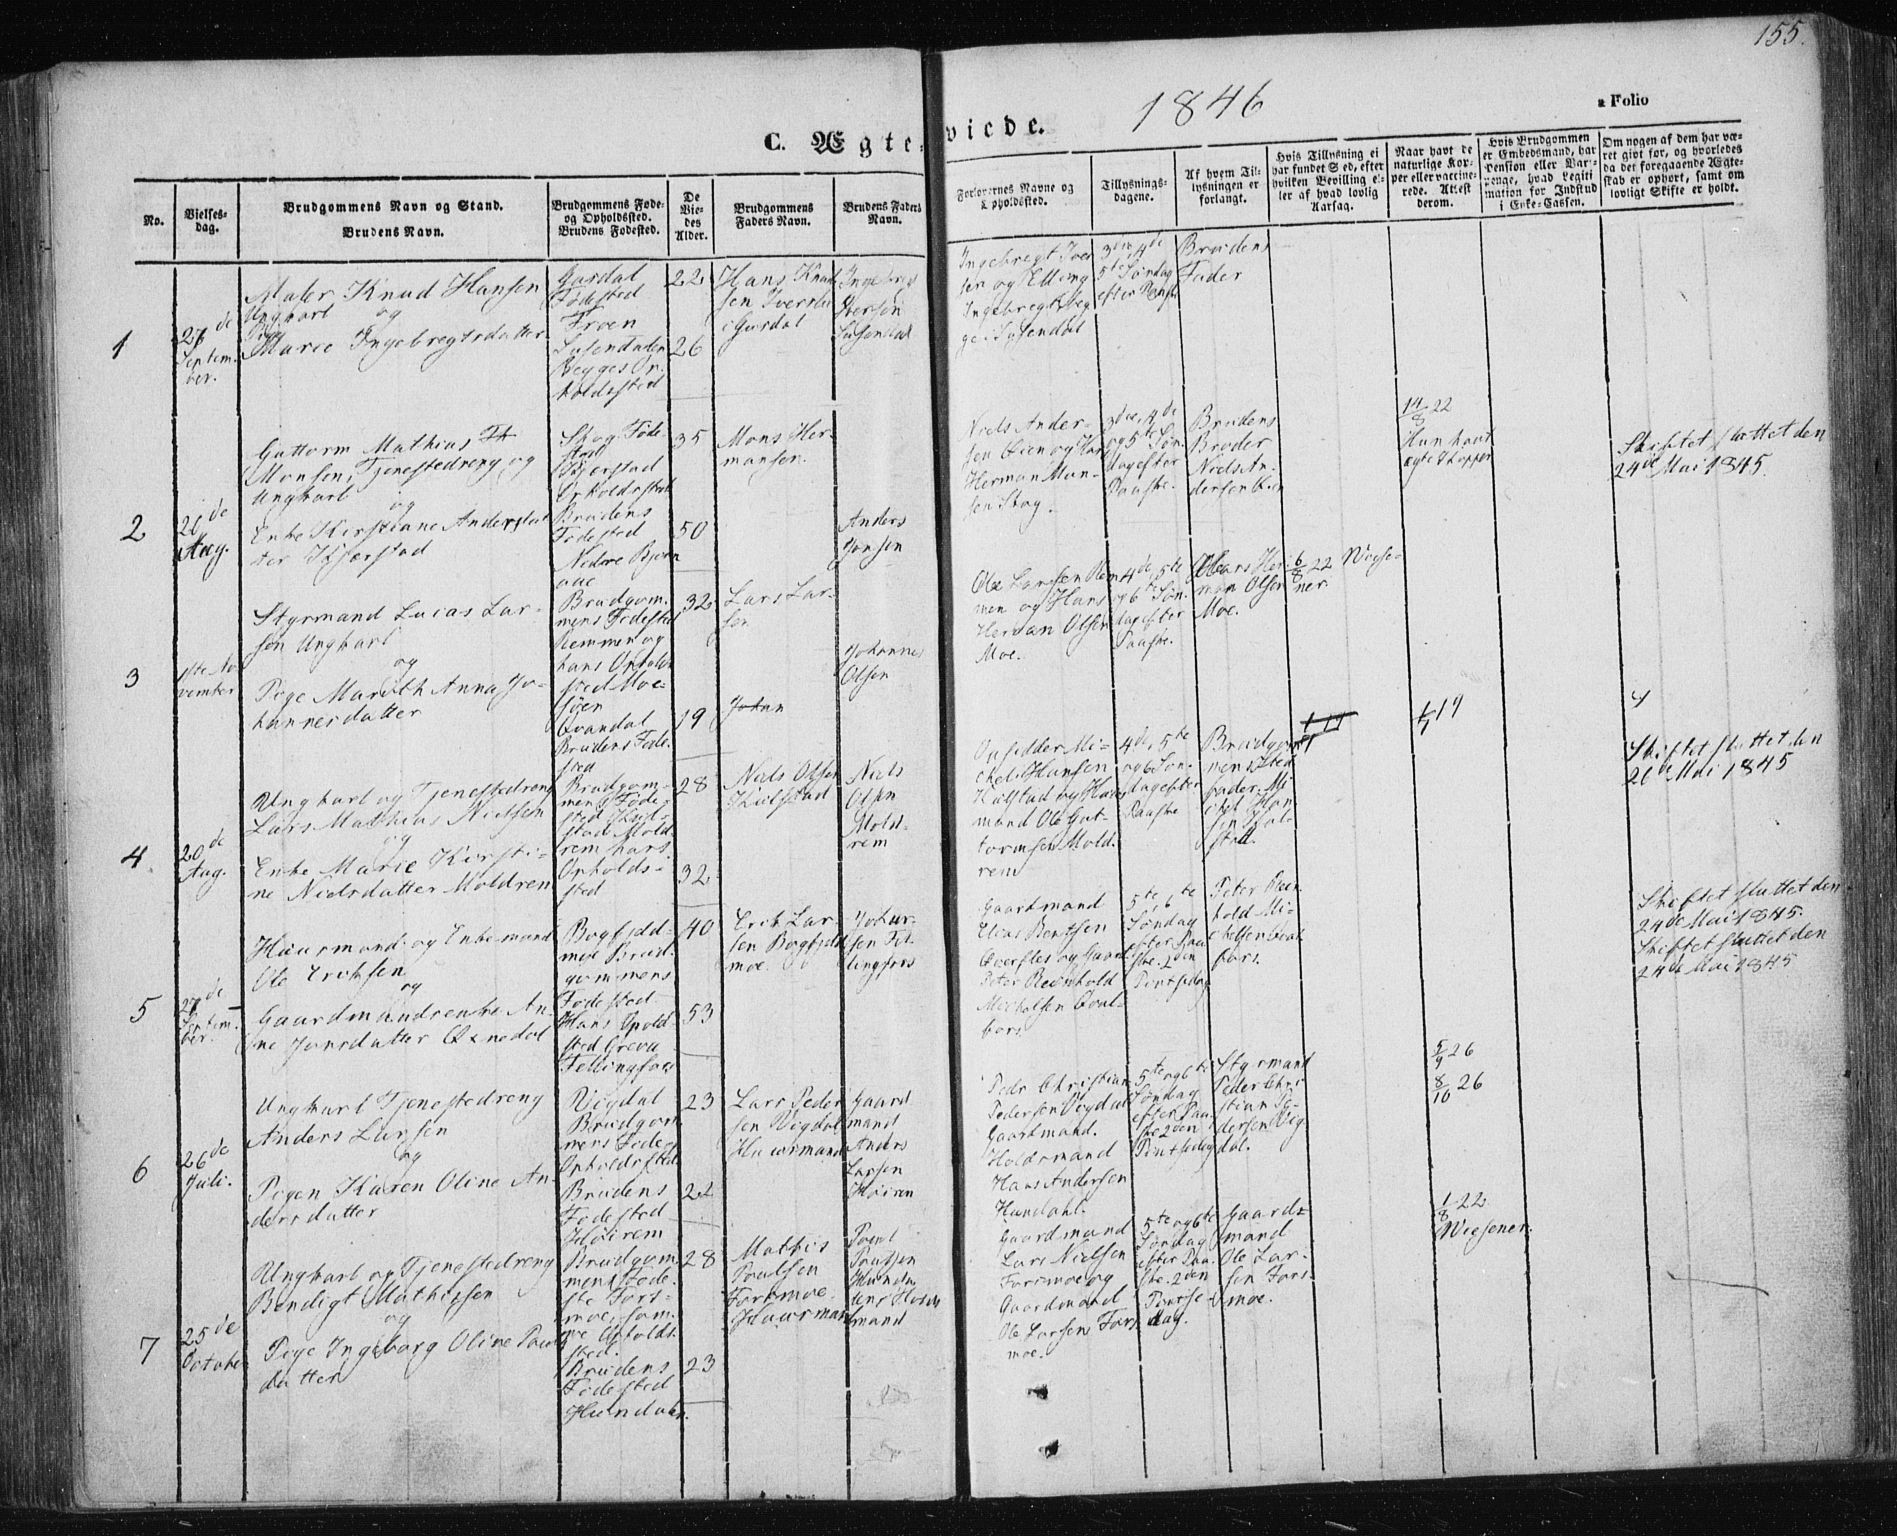 155.
1846
a Folio
C. Ægteviede.
No.
Vielses-
dag.
Brudgommens Navn og Stand.
Brudens Navn.
Brudgommens Føde-
og Opholdssted.
Brudens Fødested.
De
Vie-
des
Alder.
Brudgommens
Faders Navn.
Brudens Faders
Navn.
Forlovernes Navne og
Opholdssted.
Tillysnings-
dagene.
Af hvem Til-
lysningen er
forlangt.
Hvis Tillysning ei
har fundet Sted, efter
hvilken Bevilling el-
ler af hvad lovlig
Aarsag.
Naar havt de
naturlige Kop-
per eller vaccine-
rede. Attest
derom.
Hvis Brudgommen
er Embedsmand, har
Pension eller Var-
penge, hvad Legiti
mation for Indskud
i Enke-Cassen.
Om nogen af dem har væ-
ret gift før, og hvorledes
da det foregaaende Ægte-
skab er ophørt, samt om
lovligt Skifte er holdt.
1
27de
Septem-
ber.
Maler Knud Hansen
Ungkarl
og
Pige
Marie Ingebregtsdatter
Gusdal
Fødested
Froen
Susendalen
Begges Op-
holdssted
22
26
Hans Knud-
sen Iversli
i Gusdal
Ingebregt
Iversen
Susendal
Ingebregt Iver
sen og Elling
Ingebregts
i Susendal
3die, 4de
5te Søndag
efter Paaske
Brudens
Fader
2
26de
Aug.
Guttorm Mathias
Monsen, Tjenestedreng og
Ungkarl
og
Enke Kirstiane Andersdat
ter Kjerstad
Skog Føde-
sted
Kjerstad
Opholdssted
Brudens
Fødested
Nedre Bjorn
aae
35
50
Mons Her-
mansen.
Anders
Jonsen
Niels Ander-
sen Øien og
Herman Mon-
sen Skog.
3die, 4de
og 5te Søn-
dag efter
Paaske.
Brudens
Broder
Niels An-
dersen Øien
14/8 22
Hun havt
ægte Kopper
Skiftet sluttet den
24de Mai 1845.
3
1ste No-
vember
Styrmand Lucas Lar-
sen Ungkarl
og
Pige Marith Anna Jo-
hannesdatter
Brudgom-
mens Fødested
Remmen og
hans Ophold-
sted Moe-
sjøen
Qvandal
Brudens Føde-
sted
32
19
Lars Lar-
sen
Johan
Johannes
Olsen
Ole Larsen Rem
men og Hans
Herman Olsen
Moe.
4de, 5te
og 6te Søn-
dag efter
Paaske.
Hans Her-
man Olsen
Moe.
6/8 22 Wiese-
ner.
4
20de
Aug.
Ungkarl og Tjenestedreng
Lars Mathias Nielsen
og
Enke Marie Kirsti-
ne Nielsdatter Moldrem
Brudgom-
mens Føde-
sted Kul-
stad Mold-
rem hans
Opholds-
sted
28
32
Niels Olsen
Kulstad
Niels
Olsen
Mold-
rem
Opsidder Mi-
chel Hansen
Kulstad og Huus
mand Ole Gut-
tormsen Mold-
rem
4de, 5te
og 6 Søn-
dag efter
Paaske
Brudgom-
mens Sted-
fader Mi-
chel Han-
sen Kul-
stad.
1/7 19
Skiftet sluttet den
26de Mai 1845
5
27de
Septem-
ber.
Huusmand og Enkemand
Ole Erichsen
og
Gaardmandsenke An-
ne Jonsdatter Øxendal
Bogfjeld-
moe Brud-
gommens
Fødested
Hans Ophold-
sted
Fellingfors
40
53
Erik Lar-
sen Bogfjeld
moe
Gaardmand
Elias Bentsen
Qverfles og
Peter Reinhold
Michelsen
5te 6te
Søndag
efter Paa
ske. 2den
Pintsedag
Peter Rein-
hold Mi-
chelsen
fors.
Skiftet sluttet den
24de Mai 1845.
Skiftet sluttet den
24de Mai 1845
6
26de
Juli.
Ungkarl Tjenestedreng
Anders Larsen
og
Pigen Karen Oline An-
dersdatter
Vigdal
Brudgom
mens Føde og
Opholdssted
Brudens
Fødested
Høirem
23
22
Lars Peder
sen Vigdal
Huusmand
Gaard
mand
Anders
Larsen
Høirem
Peder Christian
Pedersen Vigdal
Gaardmand.
Holdsmand
Hans Andersen
Hundahl.
5te og 6te
Søndag
efter Paa-
ske 2den
Pintsedag
Styrmand
Peder Chri-
stian Pe-
dersen Vig-
dal.
5/9 26
8/10 26
7
25de
October
Ungkarl og Tjenestedreng
Bendigt Mathissen
og
Pige Ingeborg Oline Pouls
datter
Brudgom
mens Føde-
ste Fors-
moe, sam-
me Opholds-
sted.
Brudens
Fødested
Hundalen.
28
23
Mathis
Poulsen
Forsmoe
Huusmand
Povel
Poulsen
Hunda-
len Huus
mand
Gaardmand
Lars Nielsen
Forsmoe og
Gaardmand
Ole Larsen Fors-
moe.
5te og 6te
Søndag
efter Paa-
ske. 2den
Pintse-
dag.
Gaard-
mand
Ole Lar-
sen Fors-
moe.
1/8 22
Wiesener.